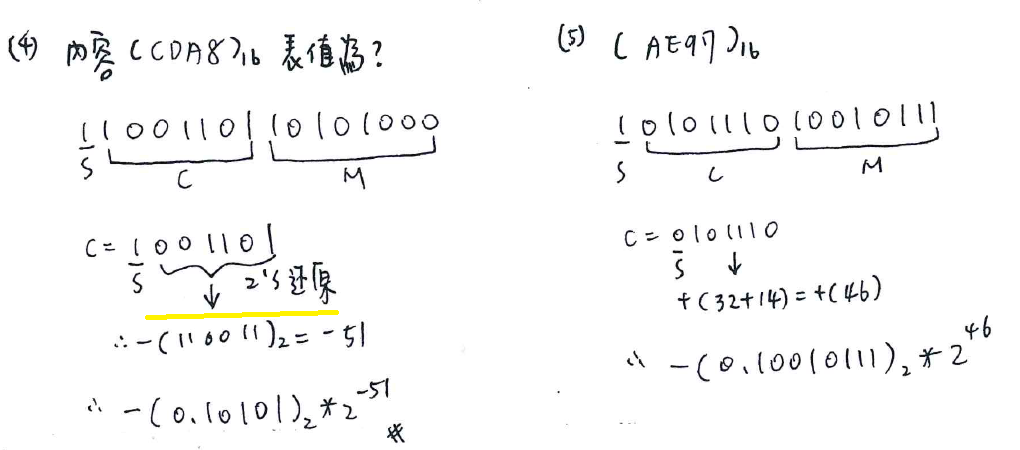 (4) 內容(CDA8)₁₆ 表值為?
1 1001101 10101000
S C M
C = 1001101
S 2's 还原
∴ -(110011)₂ = -51
∴ -(0.10101)₂ * 2^-51 #
(5) (AE97)₁₆
1 0101110 10010111
S C M
C = 0101110
S
+(32+14) = +(46)
∴ -(0.10010111)₂ * 2^46